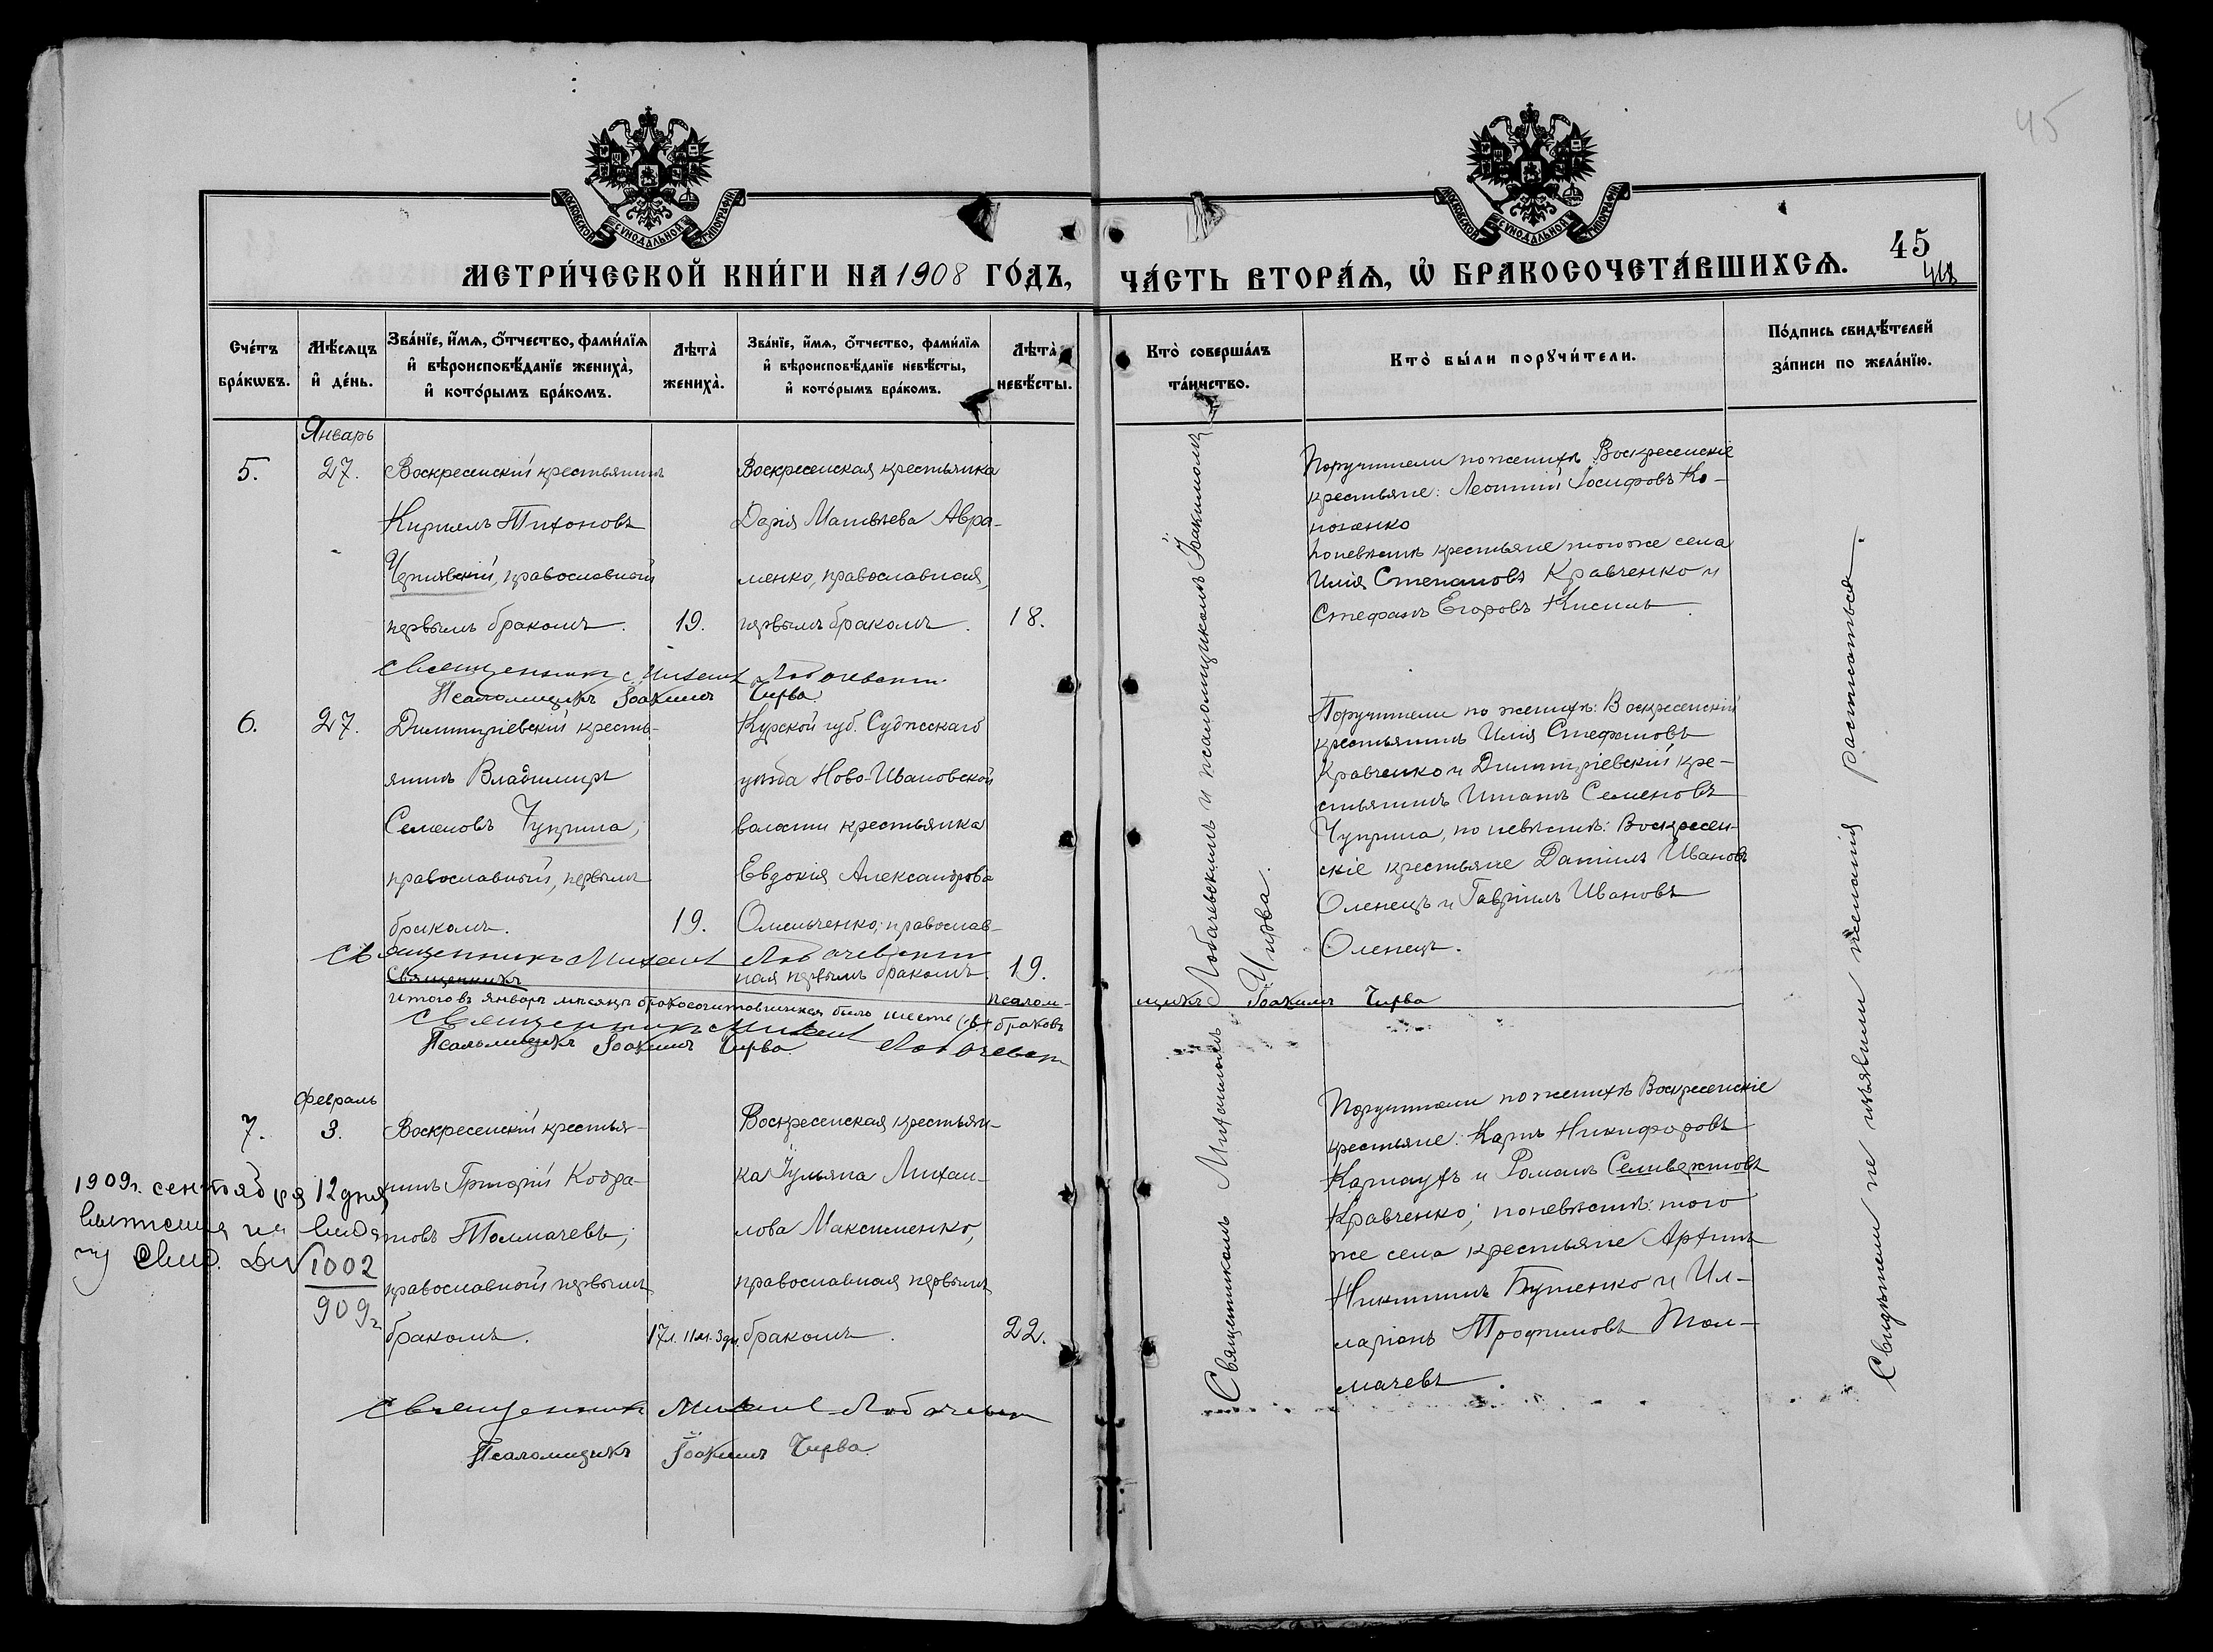 45
МОСКОВСКОЙ СѴНОДАЛЬНОЙ ТИПОГРАФІИ
МОСКОВСКОЙ СѴНОДАЛЬНОЙ ТИПОГРАФІИ
МЕТРИ́ЧЕСКОЙ КНИ́ГИ НА 1908 ГО́ДЪ,
ЧА́СТЬ ВТОРА́Ѧ, Ѡ҆ БРАКОСОЧЕТА́ВШИХСѦ.
45
Сче́тъ бра́кѡвъ.
Мѣ́сѧцъ и҆ де́нь.
Зва́нїе, и҆́мѧ, ѻ҆́тчество, фамилі́ѧ и҆ вѣроисповѣ́данїе жениха̀, и҆ кото́рымъ бра́комъ.
Лѣта̀ жениха̀.
Зва́нїе, и҆́мѧ, ѻ҆́тчество, фамилі́ѧ и҆ вѣроисповѣ́данїе невѣ́сты, и҆ кото́рымъ бра́комъ.
Лѣта̀ невѣ́сты.
Кто̀ соверша́лъ та́инство.
Кто̀ бы́ли порꙋчи́тели.
По́дпись свидѣ́телей за́писи по жела́нїю.
Январь
5.
27.
Воскресенскій крестьянинъ
Кириллъ Тихоновъ
Чернявскій, православный
первымъ бракомъ.
19.
Воскресенская крестьянка
Дарія Матвѣева Авра-
менко, православная,
первымъ бракомъ.
18.
Поручители по женихѣ Воскресенскіе
крестьяне: Леонтій Іосифовъ Ко-
ноненко
по невѣстѣ крестьяне того же села
Илія Степановъ Кравченко и
Стефанъ Егоровъ Кисиль.
Священникъ Михаилъ Лобачевскій
Псаломщикъ Іоакимъ Чирва
6.
27.
Димитріевскій кресть-
янинъ Владимиръ
Семеновъ Чуприна,
православный, первымъ
бракомъ.
19.
Курской губ. Суджскаго
уѣзда Ново-Ивановской
волости крестьянка
Евдокія Александрова
Омельченко, православ-
ная первымъ бракомъ
19.
Поручители по женихѣ: Воскресенскій
крестьянинъ Илія Стефановъ
Кравченко и Димитріевскій кре-
стьянинъ Игнатъ Семеновъ
Чуприна, по невѣстѣ: Воскресен-
скіе крестьяне Даніилъ Ивановъ
Оленецъ и Гавріилъ Ивановъ
Оленецъ.
Священникъ Михаилъ Лобачевскій
Священникъ
Псалом-
щикъ Іоакимъ Чирва
Итого въ январѣ мѣсяцѣ бракосочитавшихся было шесть (6) браковъ
Священникъ Михаилъ Лобачевскій
Псаломщикъ Іоакимъ Чирва
Февраль
7.
3.
Воскресенскій крестья-
нинъ Григорій Кодра-
товъ Толмачевъ,
православный первымъ
бракомъ.
17 л. 11 м. 3 дн.
Воскресенская крестьян-
ка Іульяна Михаи-
лова Максименко,
православная первымъ
бракомъ.
22.
Поручители по женихѣ Воскресенскіе
крестьяне: Карпъ Никифоровъ
Карнаухъ и Романъ Селивехтовъ
Кравченко; по невѣстѣ: того
же села крестьяне Архипъ
Никитинъ Бутенко и Ил-
ларіонъ Трофимовъ Тол-
мачевъ.
1909 г. сентября 12 дня
1002
909 г
Священникъ Михаилъ Лобачевскій
Псаломщикъ Іоакимъ Чирва
Священникомъ Михаиломъ Лобачевскимъ и псаломщикомъ Іоакимомъ
Чирва.
Свидѣтели не изъявили желанія расписаться.